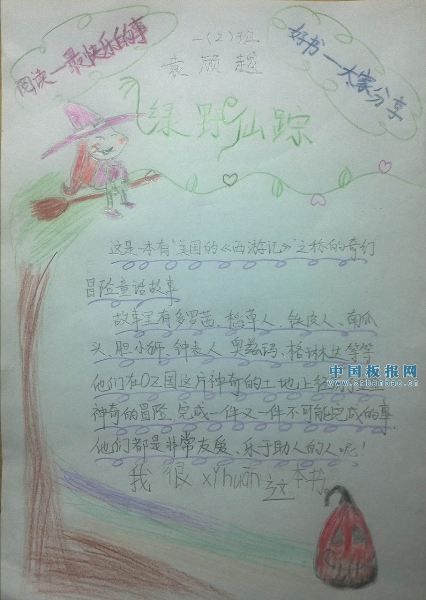 阅读—最快乐的事
好书—大家分享
一(2)班
袁顾越
绿野仙踪
这是一本有“美国的《西游记》”之称的奇幻
冒险童话故事
故事里有多罗茜、稻草人、铁皮人、南瓜
头、胆小狮、钟表人、奥兹玛、格琳达等等
他们在OZ国这片神奇的土地上经
神奇的冒险,完成一件又一件不可能完成的事.
他们都是非常友爱、乐于助人的人呢!
我很xǐhuān这本书
中国板报网